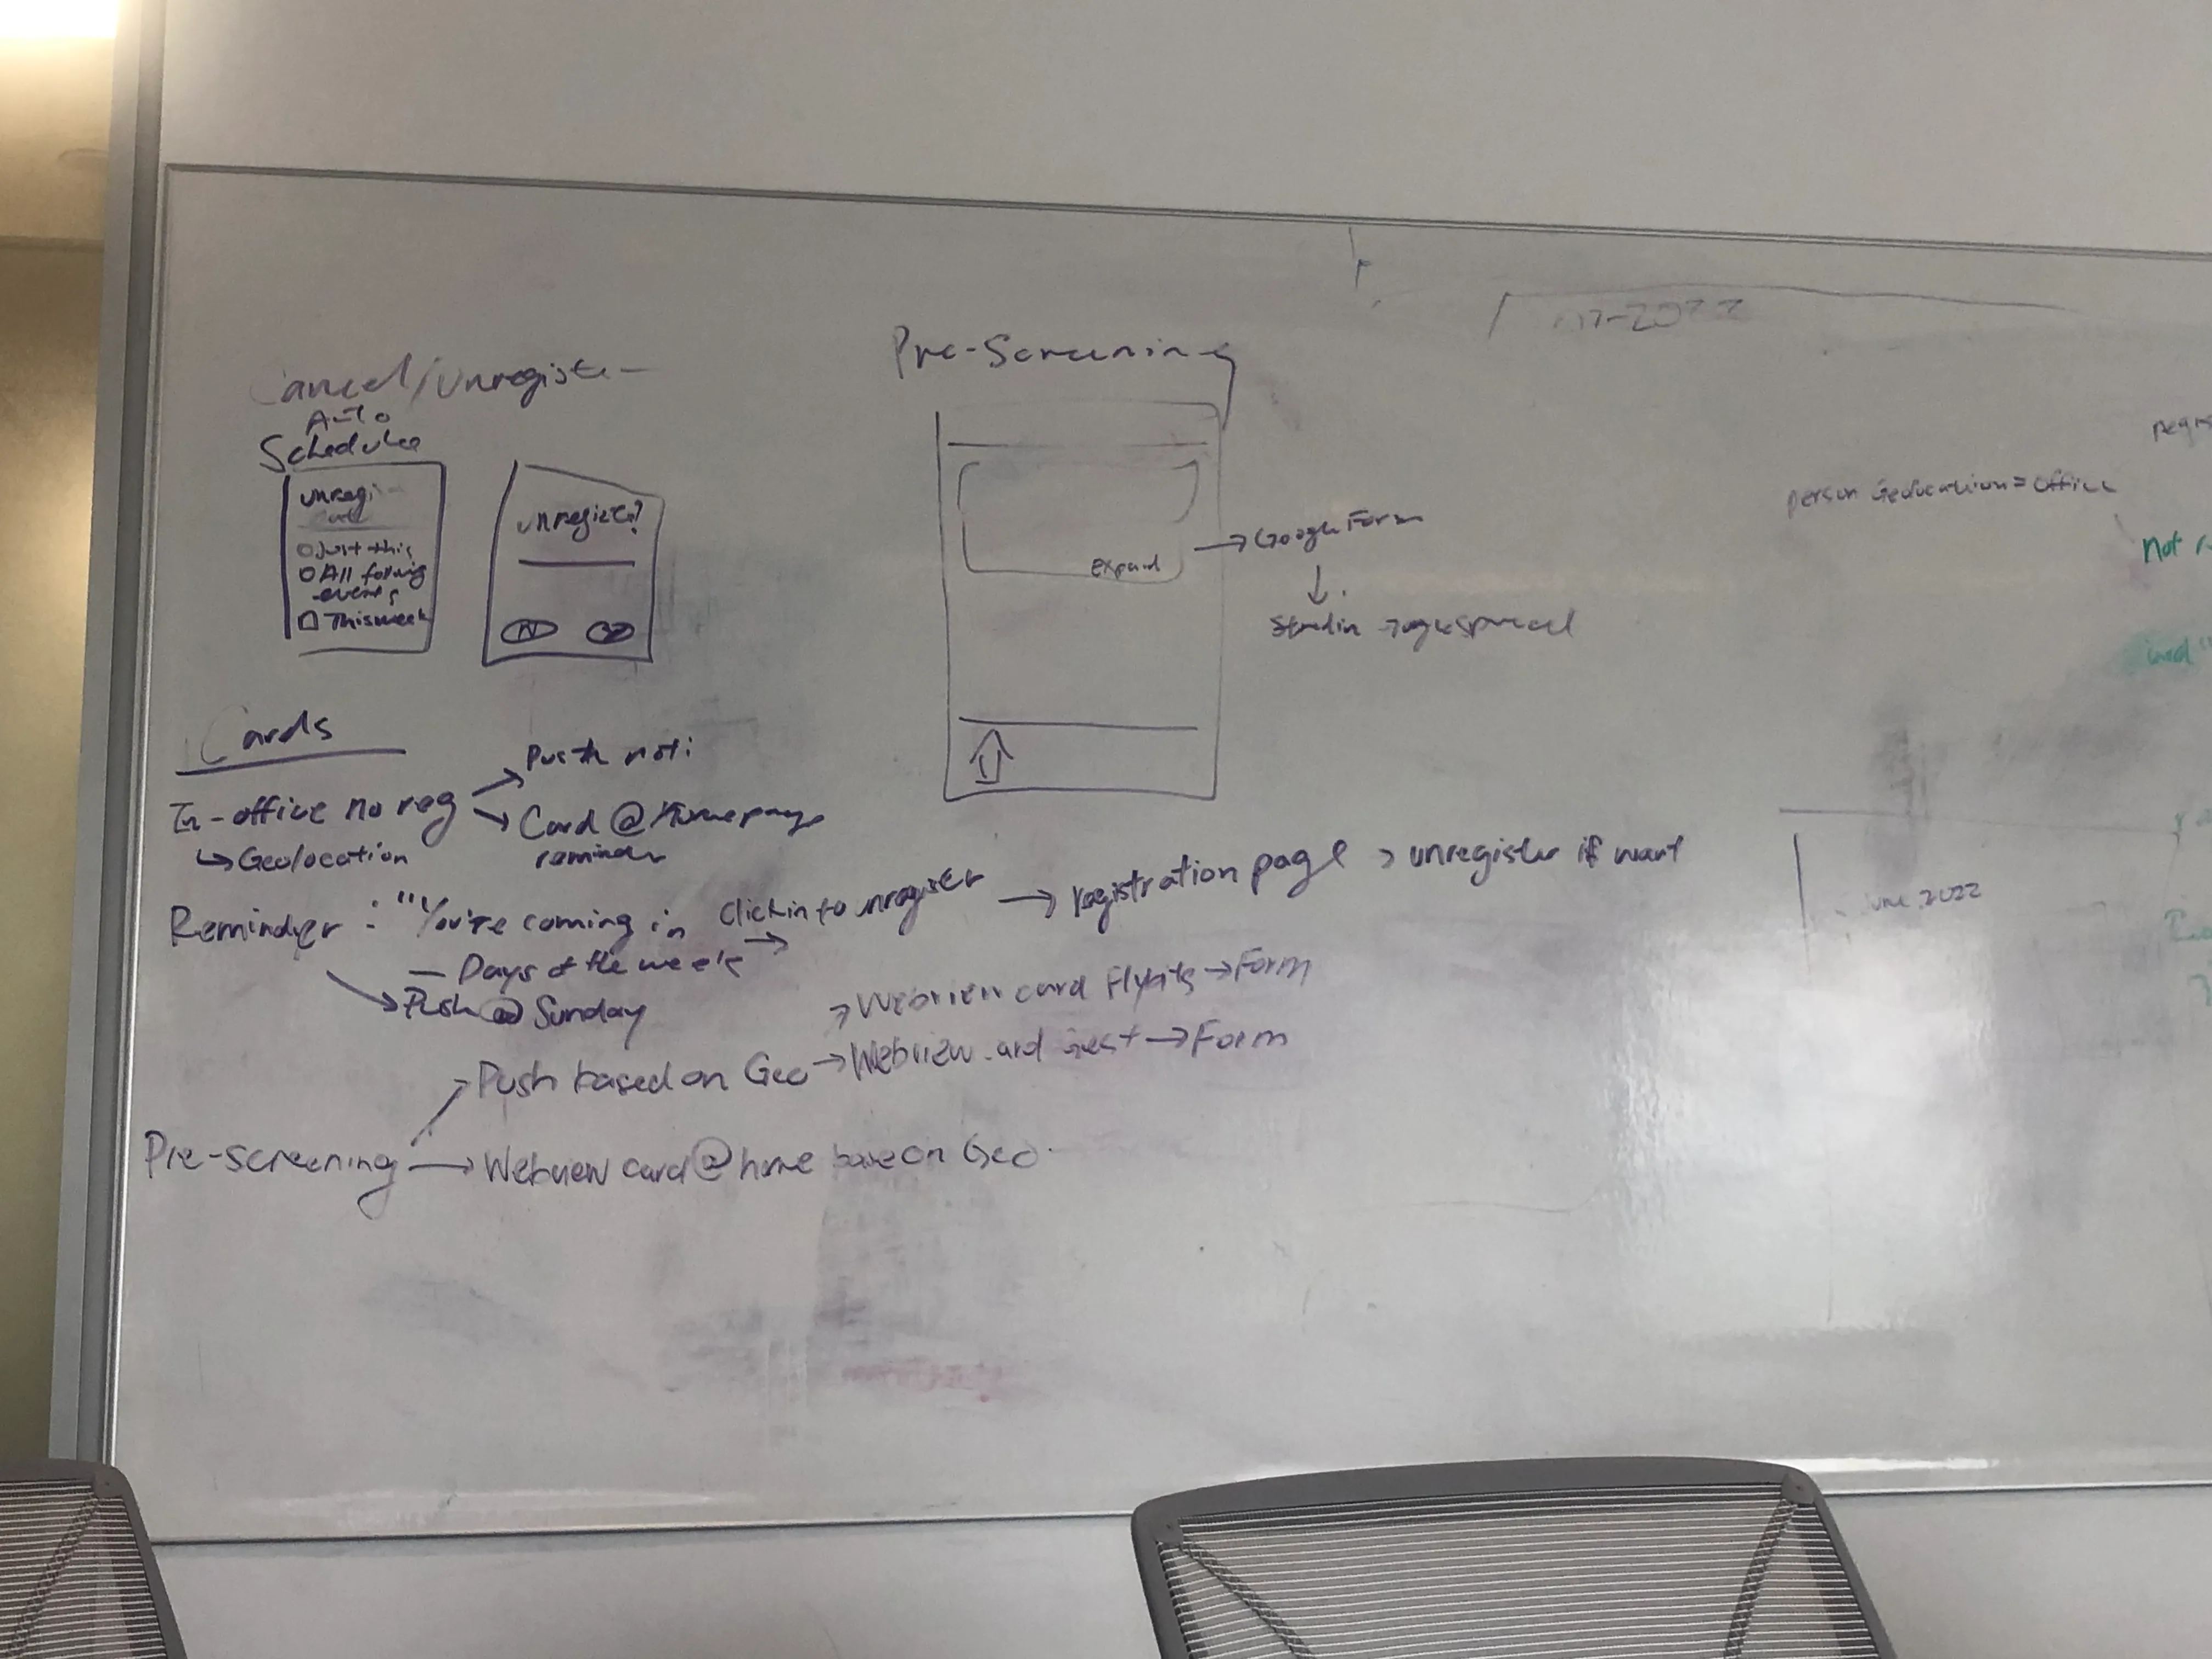 Cancel/Unregister
Auto
Schedule
unregi
Just this
All follwing
events
This week
unregister?
N
Pre-Screening
expand
→ Google Form
↓
Cards
In-office no reg
→ Push noti
→ Card @ Homepage
reminder
↳ Geolocation
Reminder : "You're coming in
— Days of the week →
Click in to unregister → registration page > unregister if want
→ Push @ Sunday
Pre-screening
→ Push based on Geo
→ Webview card Flybits → Form
→ Webview → Form
→ Webview card @ home base on Geo
2022
person Geolocation = office
Not
June 2022